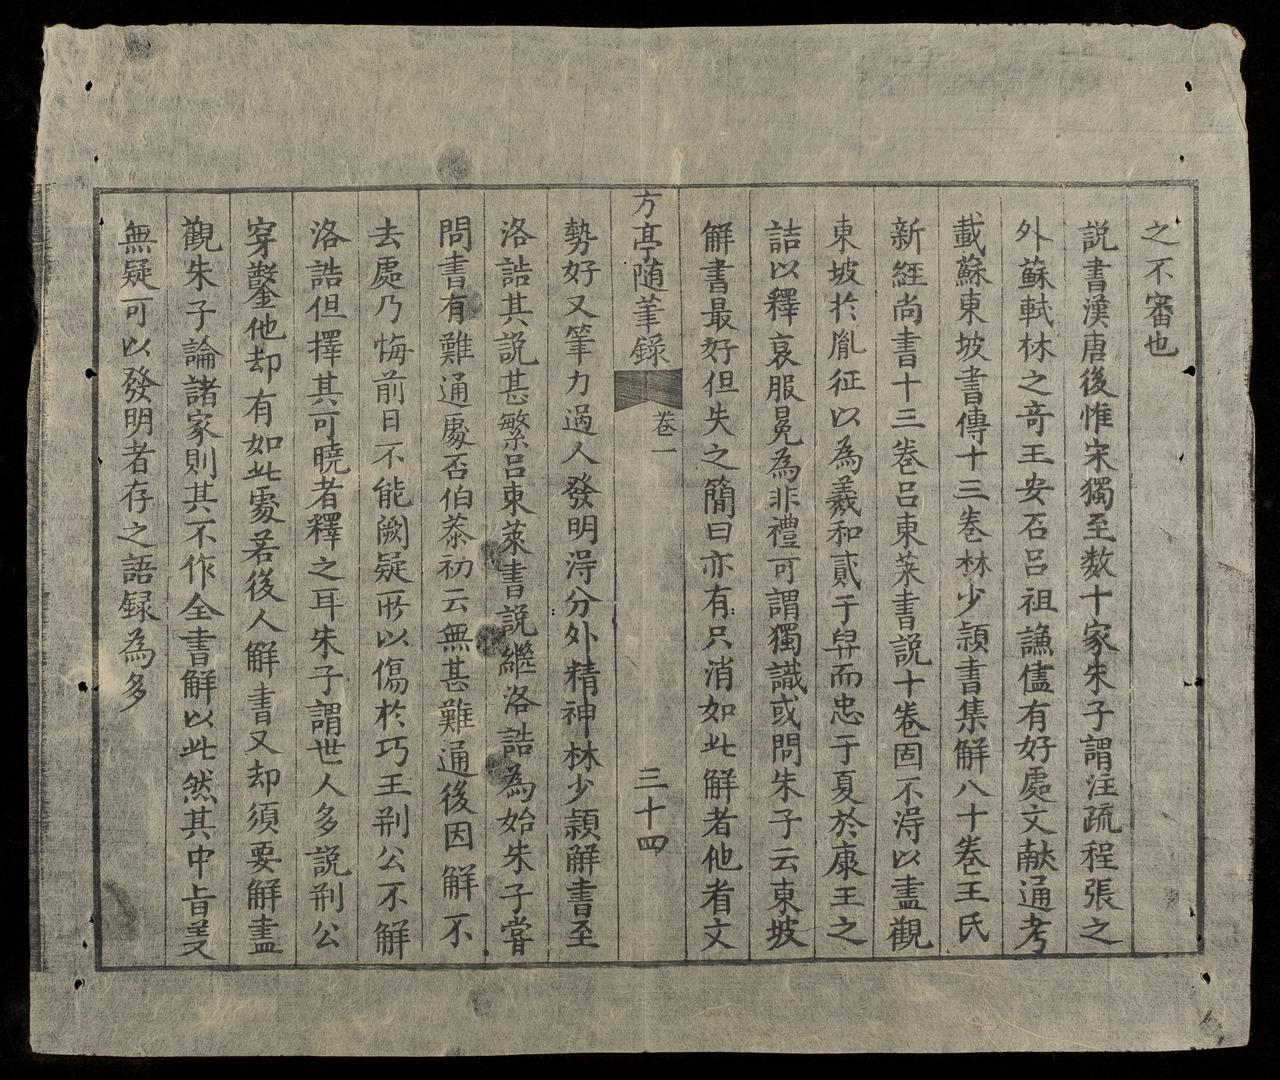 之不審也
説書漢唐後惟宋獨至数十家朱子謂注疏程張之
外蘇軾林之竒王安石呂祖謙儘有好處文献通考
載蘇東坡書傳十三卷林少穎書集解八十卷王氏
新經尚書十三卷呂東萊書説十卷固不淂以盡觀
東坡扵胤征以為羲和貳于羿而忠于夏於康王之
誥以釋哀服冕為非禮可謂獨識或問朱子云東坡
解書最好但失之簡曰亦有只消如此解者他看文
方亭随筆録 卷一 三十四
勢好又筆力過人發明淂分外精神林少穎解書至
洛誥其説甚繁呂東萊書説繼洛誥為始朱子嘗
問書有難通處否伯恭初云無甚難通後因解不
去處乃悔前日不能闕疑所以傷扵巧王荆公不解
洛誥但擇其可曉者釋之耳朱子謂世人多説荆公
穿鑿他却有如此處若後人解書又却須要解盡
觀朱子論諸家則其不作全書解以此然其中㫖美
無疑可以發明者存之語録為多